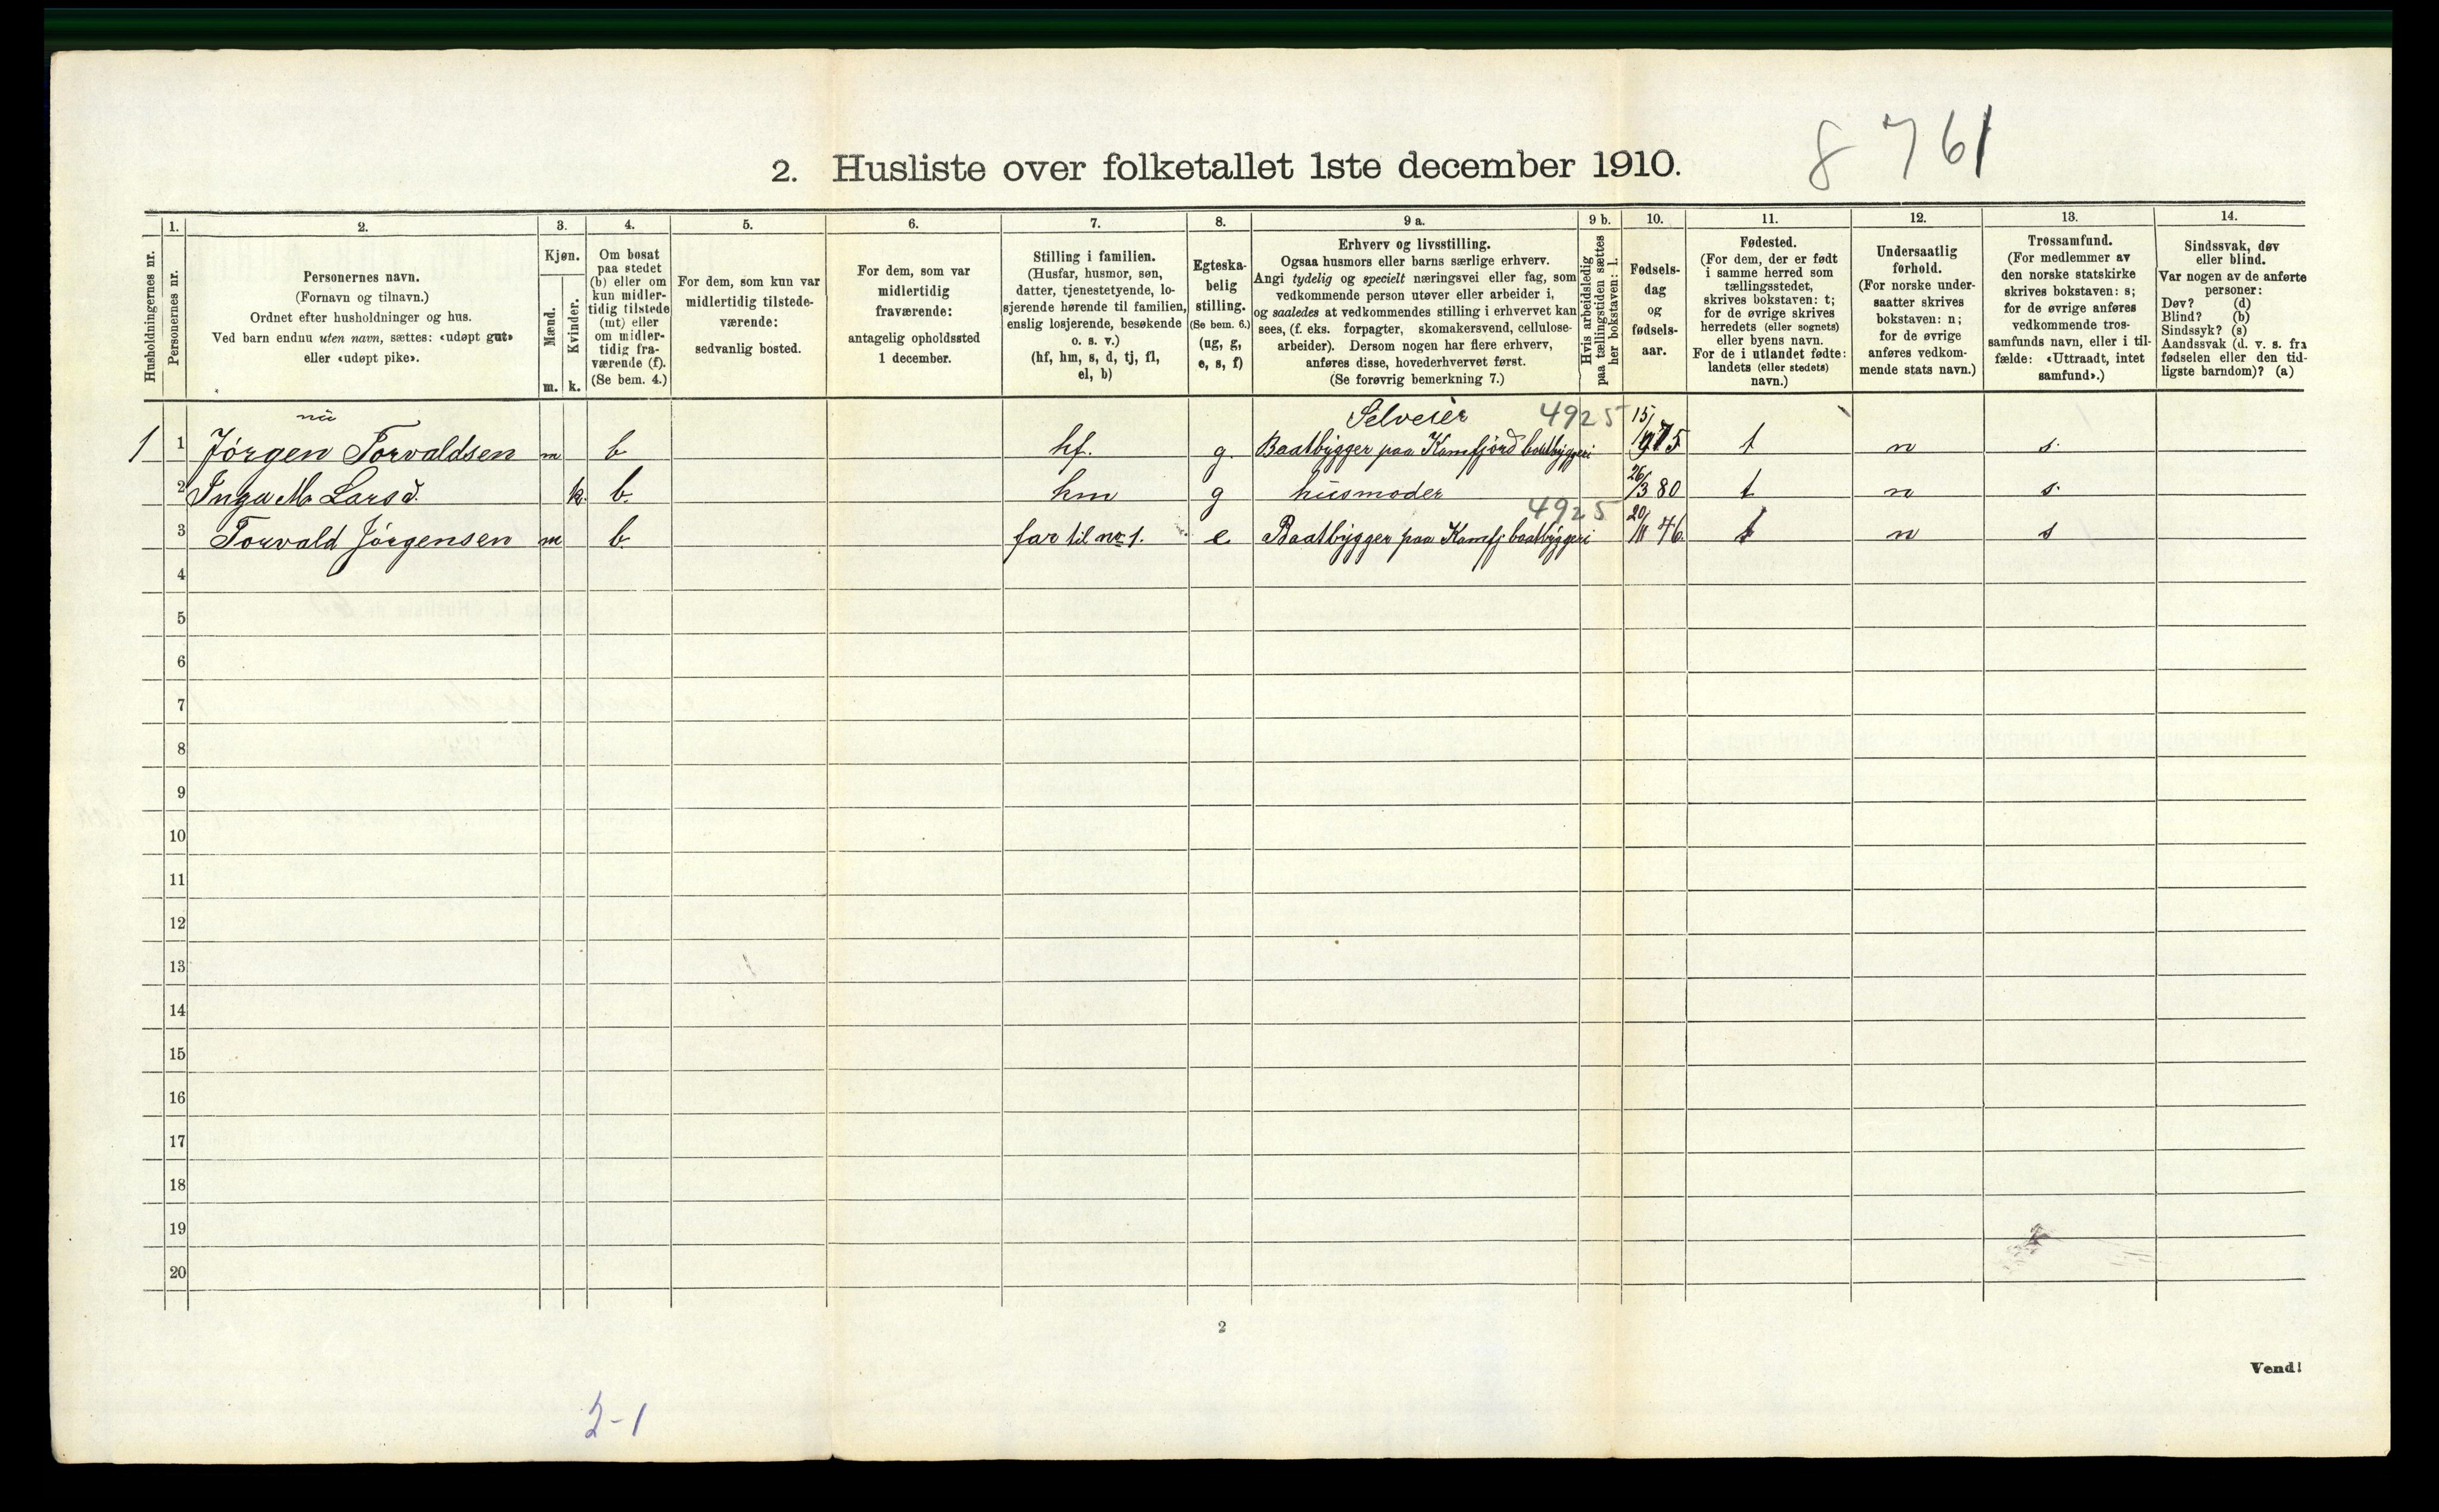 2. Husliste over folketallet 1ste december 1910.
8 761
Husholdningernes nr.
1.
Personernes nr.
2.
Personernes navn.
(Fornavn og tilnavn.)
Ordnet efter husholdninger og hus.
Ved barn endnu uten navn, sættes: «udøpt gut»
eller «udøpt pike».
3.
Kjøn.
Mænd.
m.
Kvinder.
k.
4.
Om bosat
paa stedet
(b) eller om
kun midler-
tidig tilstede
(mt) eller
om midler-
tidig fra-
værende (f).
(Se bem. 4.)
5.
For dem, som kun var
midlertidig tilstede-
værende:
sedvanlig bosted.
6.
For dem, som var
midlertidig
fraværende:
antagelig opholdssted
1 december.
7.
Stilling i familien.
(Husfar, husmor, søn,
datter, tjenestetyende, lo-
sjerende hørende til familien,
enslig losjerende, besøkende
o. s. v.)
(hf, hm, s, d, tj, fl,
el, b)
8.
Egteska-
belig
stilling.
(Se bem. 6.)
(ug, g,
e, s, f)
9 a.
Erhverv og livsstilling.
Ogsaa husmors eller barns særlige erhverv.
Angi tydelig og specielt næringsvei eller fag, som
vedkommende person utøver eller arbeider i,
og saaledes at vedkommendes stilling i erhvervet kan
sees, (f. eks. forpagter, skomakersvend, cellulose-
arbeider). Dersom nogen har flere erhverv,
anføres disse, hovederhvervet først.
(Se forøvrig bemerkning 7.)
9 b.
Hvis arbeidsledig
paa tællingstiden sættes
her bokstaven: l.
10.
Fødsels-
dag
og
fødsels-
aar.
11.
Fødested.
(For dem, der er født
i samme herred som
tællingsstedet,
skrives bokstaven: t;
for de øvrige skrives
herredets (eller sognets)
eller byens navn.
For de i utlandet fødte:
landets (eller stedets)
navn.)
12.
Undersaatlig
forhold.
(For norske under-
saatter skrives
bokstaven: n;
for de øvrige
anføres vedkom-
mende stats navn.)
13.
Trossamfund.
(For medlemmer av
den norske statskirke
skrives bokstaven: s;
for de øvrige anføres
vedkommende tros-
samfunds navn, eller i til-
fælde: «Uttraadt, intet
samfund».)
14.
Sindssvak, døv
eller blind.
Var nogen av de anførte
personer:
Døv? (d)
Blind? (b)
Sindssyk? (s)
Aandssvak (d. v. s. fra
fødselen eller den tid-
ligste barndom)? (a)
Selveier 4925
1 1 Jørgen Torvaldsen m b hf. g. Baatbygger paa Kamfjord baatbyggeri 15/9 75 t n s.
2 Inga M. Larsd. k. b. hm g husmoder 26/3 80 t n s.
4925
3 Torvald Jørgensen m b. far til no 1. e Baatbygger paa Kamfj baatbyggeri 20/11 46. t n s
4
5
6
7
8
9
10
11
12
13
14
15
16
17
18
19
20
2
Vend!
2-1